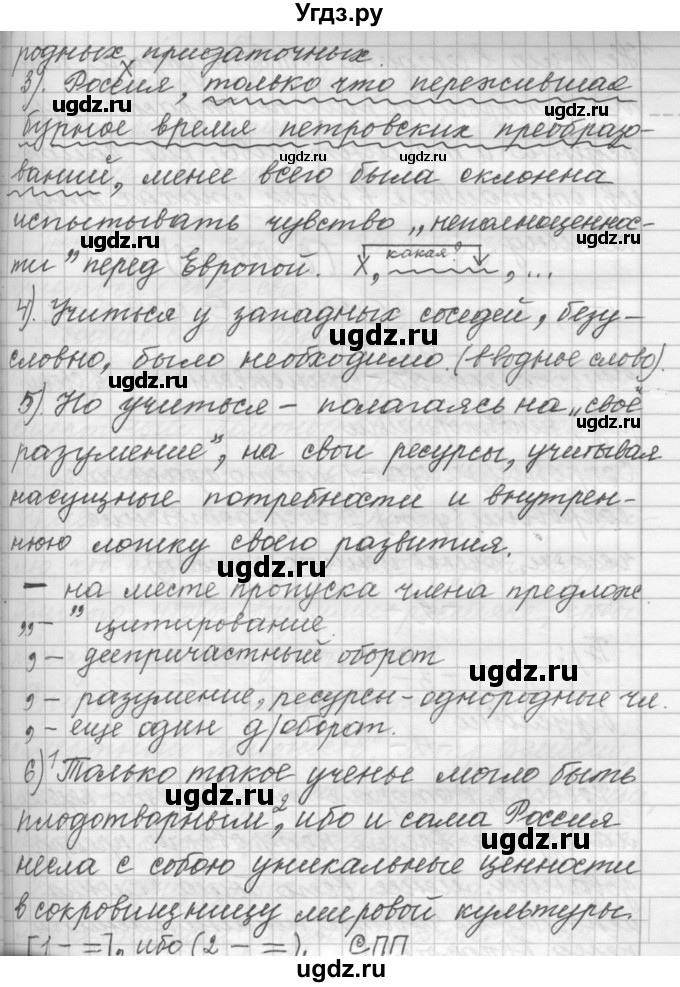 Угдз.ру
родных придаточных.
3). Россия, только что пережившая
бурное время петровских преобразо-
ваний, менее всего была склонна
испытывать чувство „неполноценнос-
ти" перед Европой. х, какая? , ...
4). Учиться у западных соседей, безу-
словно, было необходимо. (вводное слово).
5) Но учиться – полагаясь на „своё
разумение", на свои ресурсы, учитывая
насущные потребности и внутрен-
нюю логику своего развития.
– на месте пропуска члена предлож.
„ – " цитирование
, – деепричастный оборот
, – разумение, ресурсы – однородные чл.
, – еще один д/оборот.
6) ¹Только такое ученье могло быть
плодотворным, ²ибо и сама Россия
несла с собою уникальные ценности
в сокровищницу мировой культуры.
[1 – =], ибо (2 – =). СПП
ugdz.ru